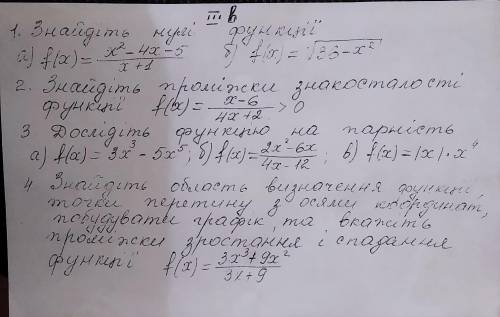 III В
1. Знайдіть нулі функції
а) f(x) = (x² - 4x - 5)/(x + 1) б) f(x) = √(33 - x²)
2. Знайдіть проміжки знакосталості
функції f(x) = (x - 6)/(4x + 2) > 0
3 Дослідіть функцію на парність
а) f(x) = 3x³ - 5x⁵; б) f(x) = (2x² - 6x)/(4x - 12); в) f(x) = |x| · x⁴
4 Знайдіть область визначення функції,
точки перетину з осями координат,
побудувати графік, та вкажіть
проміжки зростання і спадання
функції f(x) = (3x³ + 9x²)/(3x + 9)